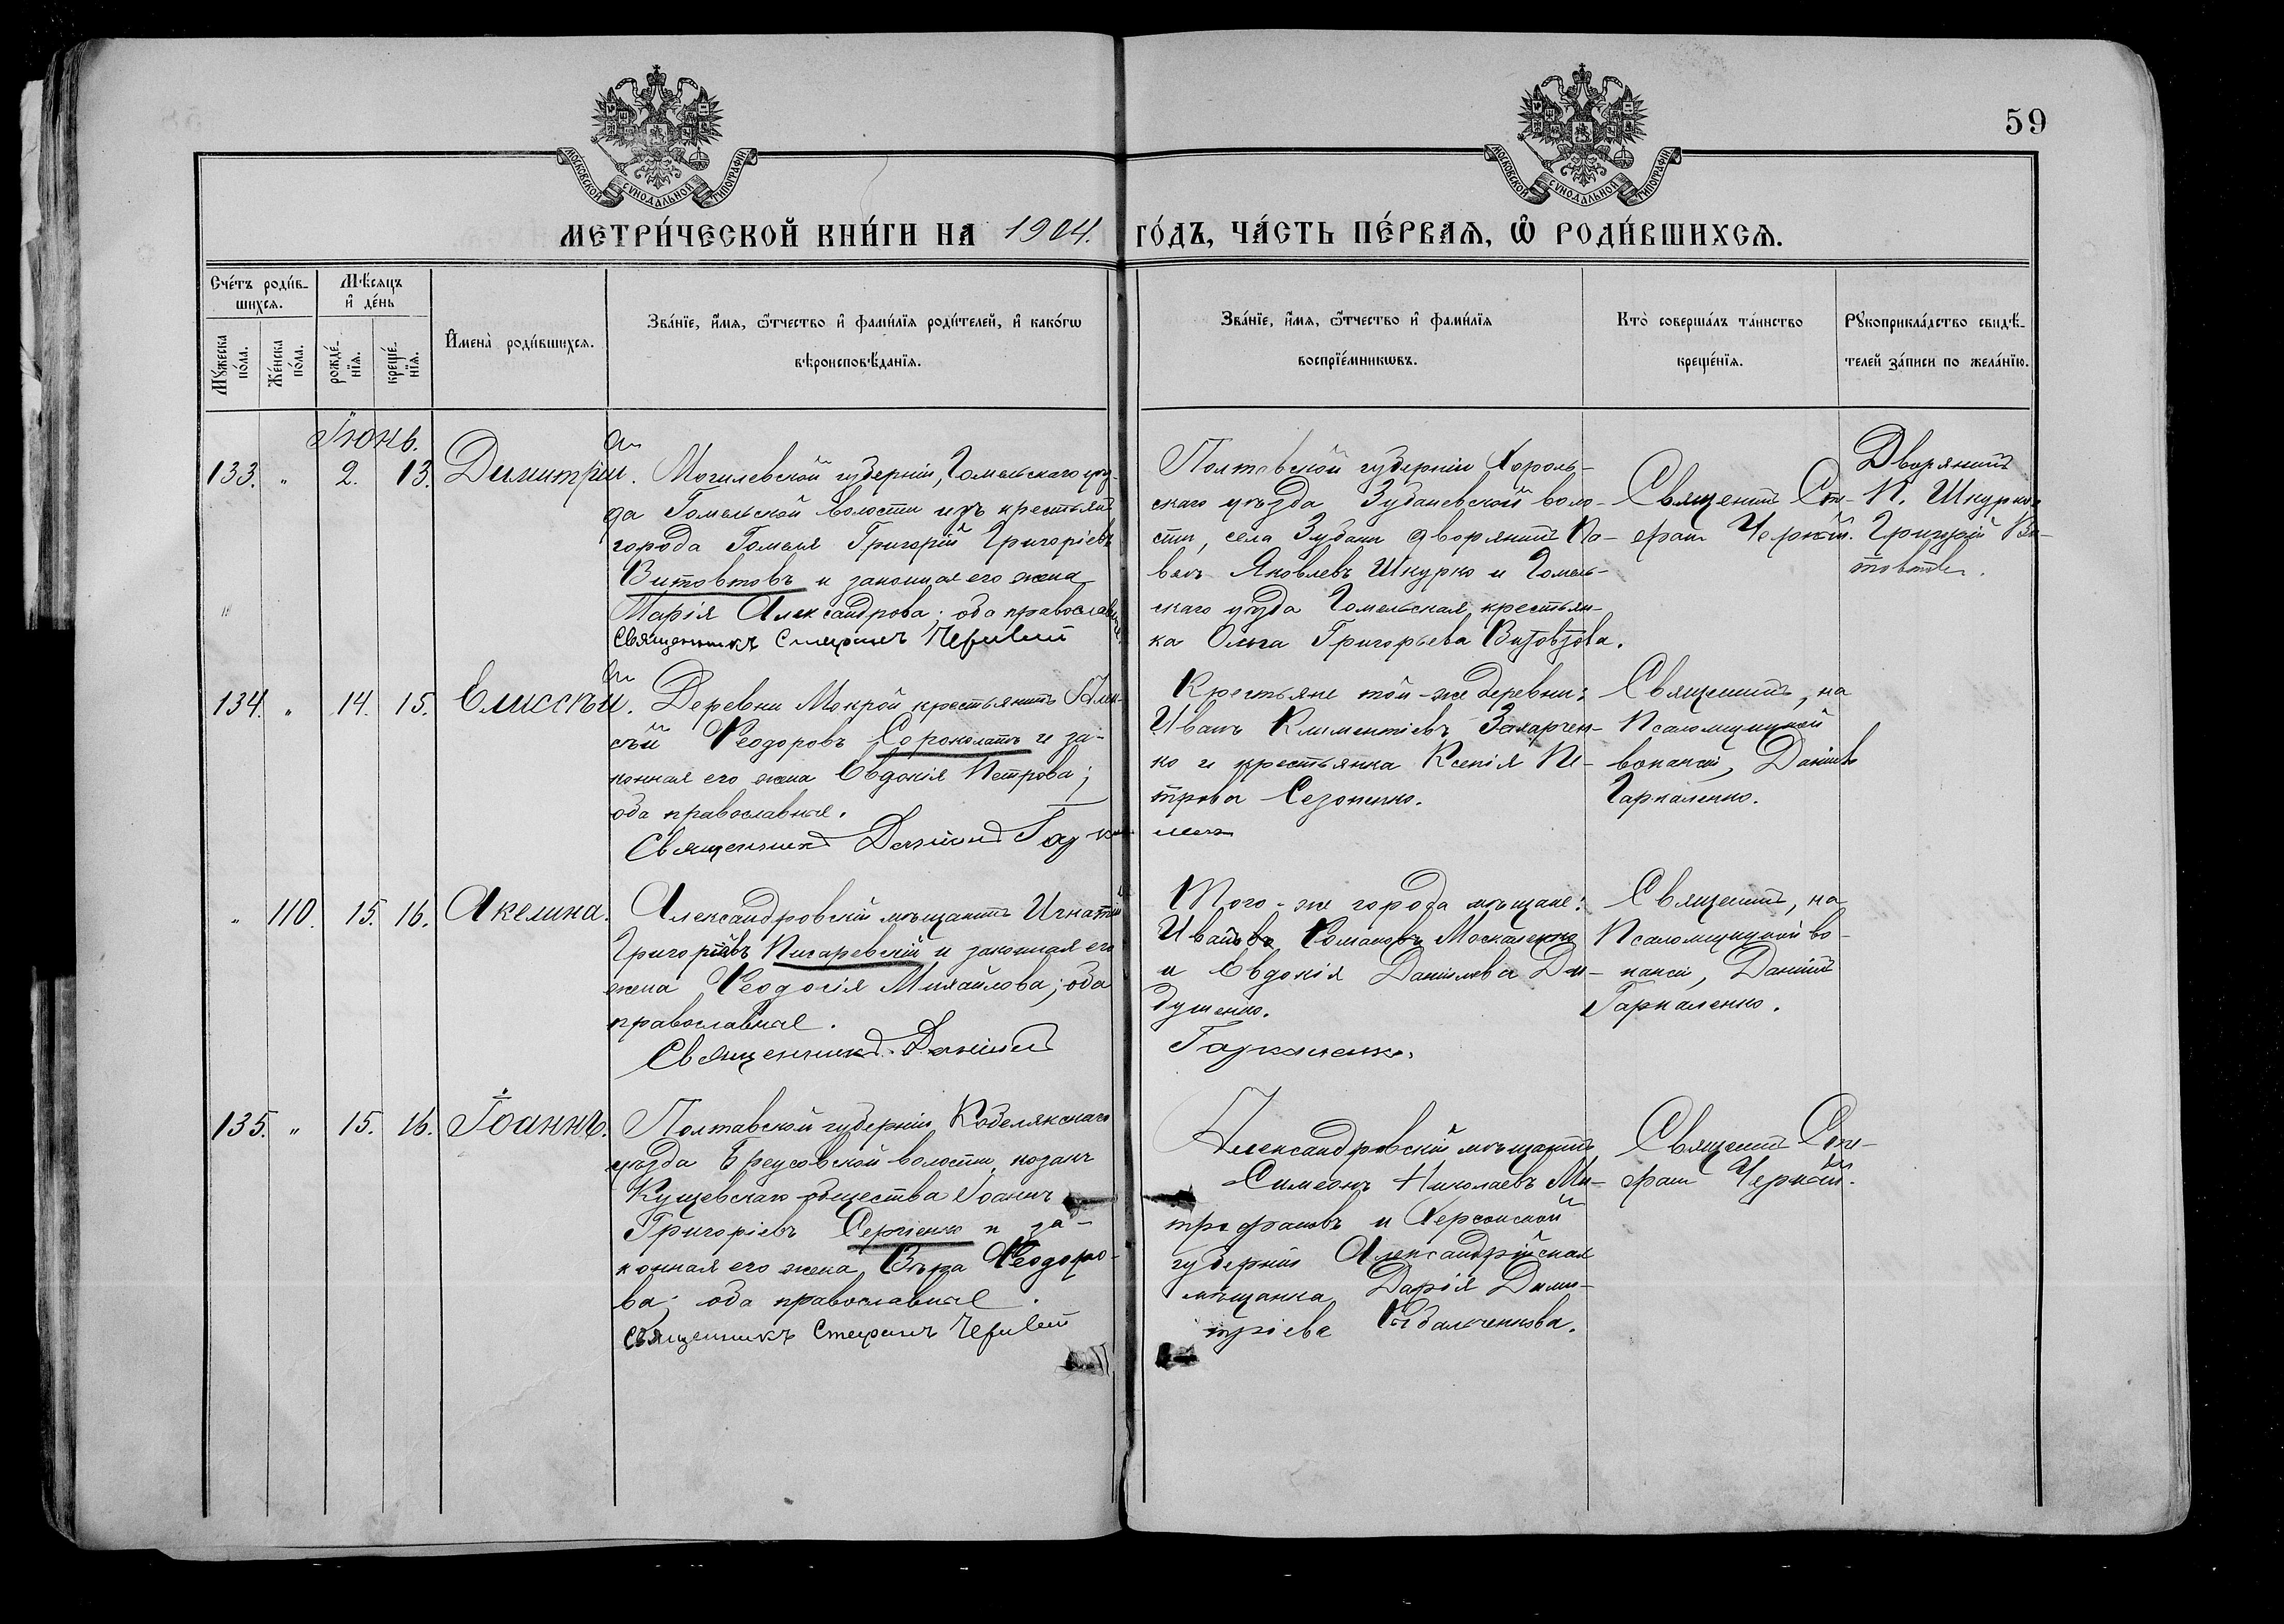 59
МОСКОВСКОЙ СУНОДАЛЬНОЙ ТИПОГРАФІИ.
МОСКОВСКОЙ СУНОДАЛЬНОЙ ТИПОГРАФІИ.
МЕТРИ́ЧЕСКОЙ КНИ́ГИ НА 1904. ГО́ДЪ, ЧА́СТЬ ПЕ́РВАѦ, Ѡ҆ РОДИ́ВШИХСѦ.
Сче́тъ роди́в-
шихсѧ.
Мꙋ́жеска по́ла.
Же́нска по́ла.
Мѣ́сѧцъ
и҆ де́нь
рожде́-
нїѧ.
креще́-
нїѧ.
И҆мена̀ роди́вшихсѧ.
Зва́нїе, и҆́мѧ, ѻ҆́тчество и҆ фами́лїѧ роди́телей, и҆ како́гѡ
вѣроисповѣ́данїѧ.
Зва́нїе, и҆́мѧ, ѻ҆́тчество и҆ фами́лїѧ
воспрїе́мникѡвъ.
Кто̀ соверша́лъ та́инство
креще́нїѧ.
Рꙋкоприкла́дство свидѣ́-
телей за́писи по жела́нїю.
Іюнь.
133. " 2. 13. Димитрій.
Могилевской губерніи, Гомельскаго уѣз-
да Гомельской волости изъ крестьянъ
города Гомеля Григорій Григоріевъ
Витовтовъ и законная его жена
Марія Александрова; оба православные.
Священникъ Стефанъ Черній
Полтавской губерніи Хороль-
скаго уѣзда Зубаневской воло-
сти, села Зубани дворянинъ Па-
велъ Яковлевъ Шкурко и Гомель-
скаго уѣзда Гомельская крестьян-
ка Ольга Григорьева Витовтова.
Священникъ Сте-
фанъ Черній.
Дворянинъ
П. Шкурко.
Григорій Ви-
товтовъ.
134. " 14. 15. Елиссѣй.
Деревни Мокрой крестьянинъ
Ѳеодоровъ Сороколатъ и за-
конная его жена Евдокія Петрова;
оба православные.
Священникъ Даніилъ Гарка-
ленко
Крестьяне той-же деревни:
Иванъ Климентіевъ Захарчен-
ко и крестьянка Ксенія Пе-
трова Сезоненко.
Священникъ, на
Псаломщицкой
вакансіи, Даніилъ
Гаркаленко.
" 110. 15. 16. Акелина.
Александровскій мѣщанинъ Игнатій
Григоріевъ Писаревскій и законная его
жена Ѳеодосія Михайлова; оба
православные.
Священникъ Даніилъ
Гаркаленко.
Того-же города мѣщане:
Иванъ Романовъ Москаленко
и Евдокія Данилова Ди-
душенко.
Священникъ, на
Псаломщицкой ва-
кансіи, Даніилъ
Гаркаленко.
135. " 15. 16. Іоаннъ.
Полтавской губерніи, Кобелякскаго
уѣзда Бреусовской волости, козакъ
Кущевскаго общества Іоаннъ
Григоріевъ Сергіенко и за-
конная его жена Вѣра Ѳеодоро-
ва; оба православные.
Священникъ Стефанъ Черній
Александровскій мѣщанинъ
Симеонъ Николаевъ Ми-
трофановъ и Херсонской
губерніи Александрійская
мѣщанка Дарія Дими-
тріева
Священникъ Сте-
фанъ Черній.